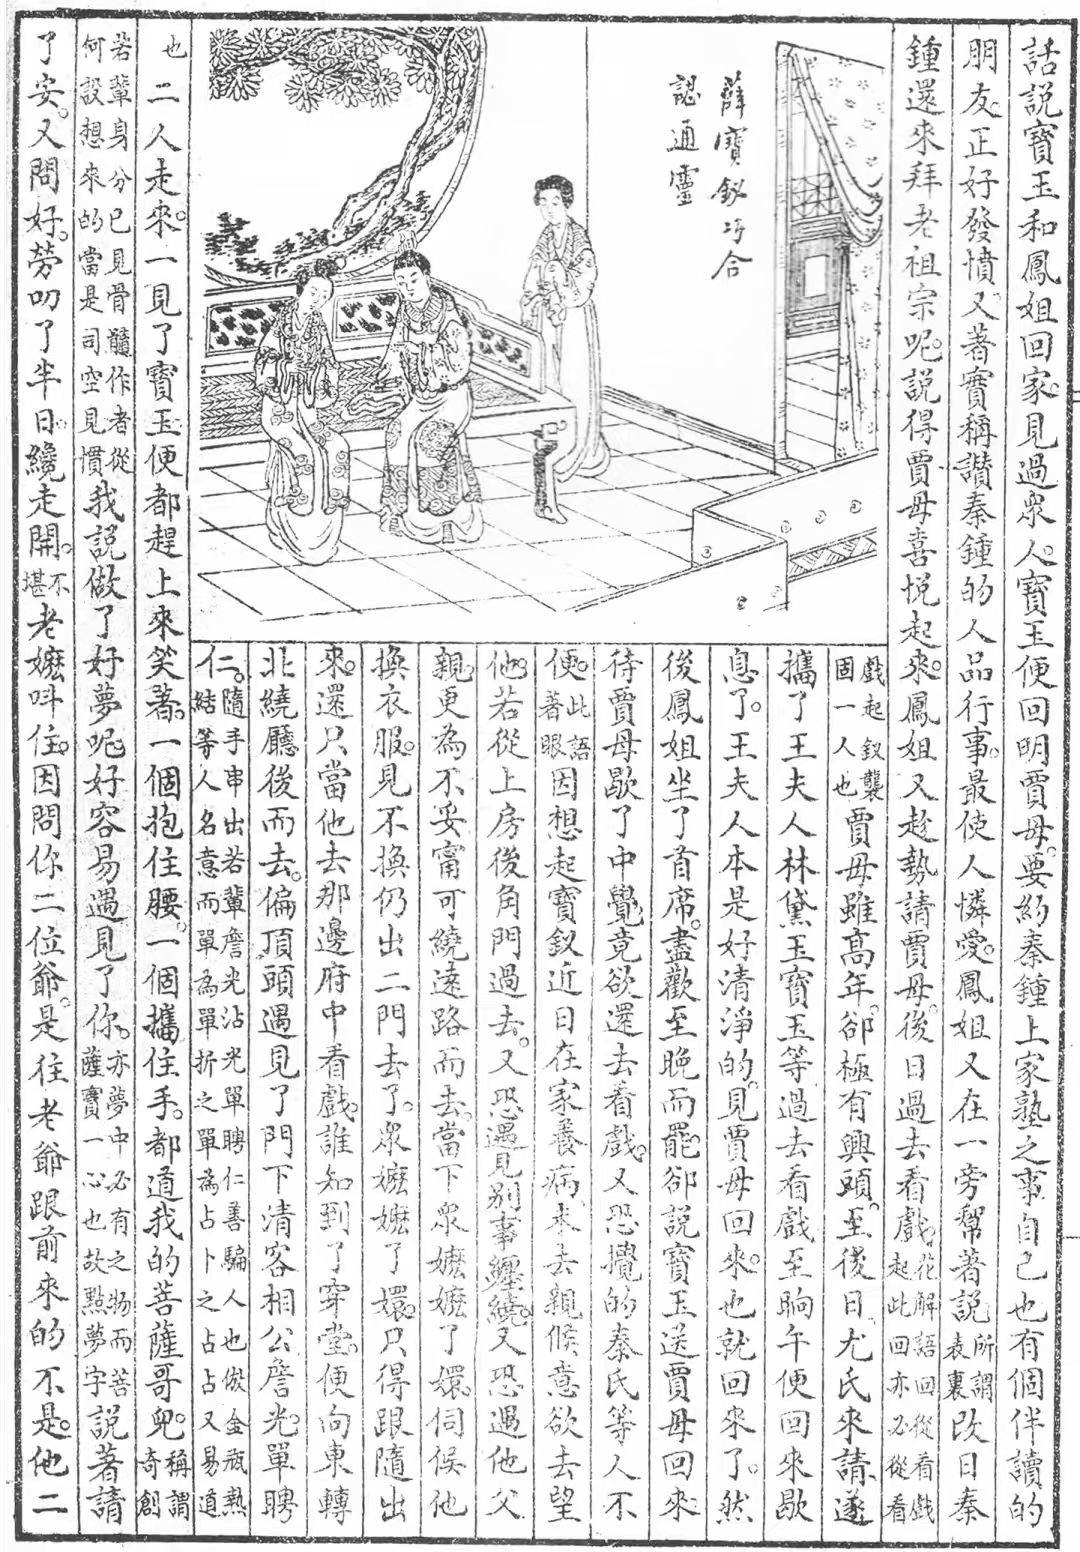 話説寶玉和鳳姐回家。見過眾人。寶玉便回明賈母。要約秦鍾上家塾之事自己也有個伴讀的
朋友。正好發憤。又著實稱讃秦鍾的人品行事。最使人憐愛。鳳姐又在一旁幫著說所謂表裏改日秦
鍾還來拜老祖宗呢。説得賈母喜悅起來。鳳姐又趁勢請賈母。後日過去看戲。花解語回從看戲起此回亦必從看
薛寶釵巧合
認通靈
戲起釵襲固一人也賈母雖高年。卻極有興頭。至後日尤氏來請。遂
攜了王夫人林黛玉寶玉等過去看戲至晌午便回來歇
息了。王夫人本是好清淨的。見賈母回來。也就回來了。然
後鳳姐坐了首席。盡歡至晚而罷。卻說寶玉送賈母回來
待賈母歇了中覺。竟欲還去看戲。又恐攪的秦氏等人不
便。此語著眼因想起寶釵近日在家養病。未去親候。意欲去望
他。若從上房後角門過去。又恐遇見別事纏繞。又恐遇他父
親。更為不妥甯可繞遠路而去。當下眾嬤嬤丫嬛。伺候他
換衣服。見不換仍出二門去了。眾嬤嬤丫嬛。只得跟隨出
來。還只當他去那邊府中看戲。誰知到了穿堂。便向東轉
北繞廳後而去。偏頂頭遇見了門下清客相公詹光。單聘
仁。隨手串出若輩詹光沾光單聘仁善騙人也倣金瓶熱結等人名意而單為單折之單為占卜之占占又易道
也二人走來。一見了寶玉便都趕上來笑著。一個抱住腰。一個攜住手。都道我的菩薩哥兒。稱謂奇創
若輩身分已見骨髓作者從何設想來的當是司空見慣我說做了好夢呢。好容易遇見了你。亦夢中必有之物而菩薩寶一心也故點夢字說著請
了安。又問好。勞叨了半日。纔走開。不堪老嬤呌住。因問你二位爺。是往老爺跟前來的不是。他二